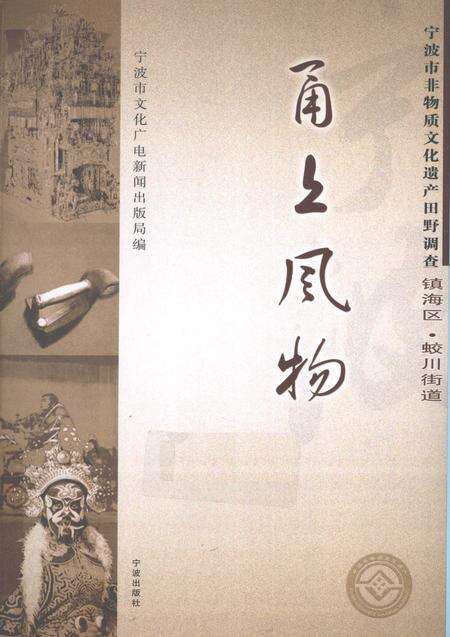 宁波市非物质文化遗产田野调查
镇海区·蛟川街道
甬上风物
宁波市文化广电新闻出版局编
宁波出版社